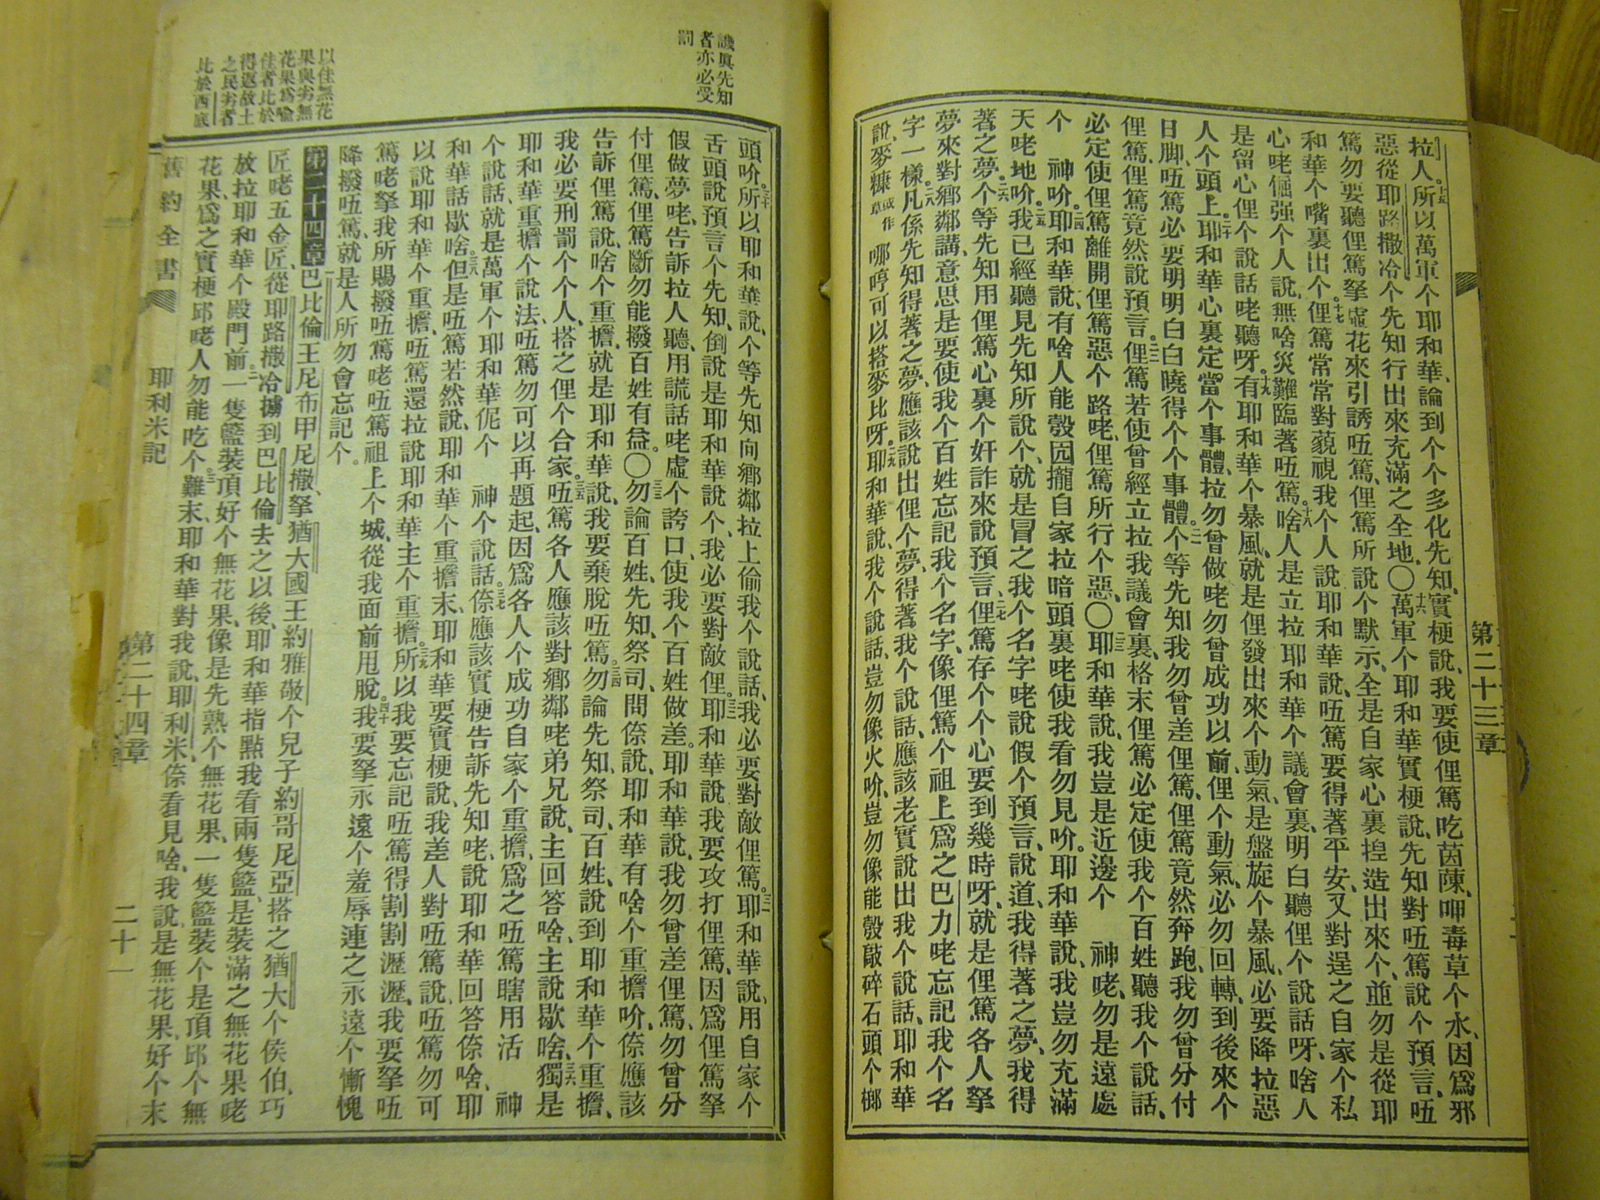 第二十三章
拉人。十五所以萬軍个耶和華、論到个个多化先知、實梗說、我要使俚篤吃茵蔯、呷毒草个水、因爲邪
惡從耶路撒冷个先知行出來、充滿之全地、〇十六萬軍个耶和華實梗說、先知對㕶篤說个預言、㕶
篤勿要聽、俚篤拏虛花來引誘㕶篤、俚篤所說个默示、全是自家心裏揑造出來个、並勿是從耶
和華个嘴裏出个。十七俚篤常常對藐視我个人說、耶和華說、㕶篤要得著平安、又對逞之自家个私
心咾倔强个人說、無啥災難臨著㕶篤。十八啥人是立拉耶和華个議會裏、明白聽俚个說話呀、啥人
是留心俚个說話咾聽呀。十九有耶和華个暴風、就是俚發出來个動氣、是盤旋个暴風、必要降拉惡
人个頭上。二十耶和華心裏定當个事體、拉勿曾做咾勿曾成功以前、俚个動氣、必勿回轉、到後來个
日脚、㕶篤必要明明白白曉得个个事體。二一个等先知我勿曾差俚篤、俚篤竟然奔跑、我勿曾分付
俚篤、俚篤竟然說預言。二二俚篤若使曾經立拉我議會裏、格末俚篤必定使我个百姓聽我个說話、
必定使俚篤離開俚篤惡个路咾、俚篤所行个惡、〇二三耶和華說、我豈是近邊个　神咾、勿是遠處
个　神吤。二四耶和華說、有啥人能彀囥攏自家拉暗頭裏咾使我看勿見吤。耶和華說、我豈勿充滿
天咾地吤。二五我已經聽見先知所說个、就是冒之我个名字咾說假个預言、說道、我得著之夢、我得
著之夢。二六个等先知用俚篤心裏个奸詐來說預言、二七俚篤存个个心要到幾時呀、就是俚篤各人拏
夢來對鄉鄰講、意思是要使我个百姓忘記我个名字、像俚篤个祖上爲之巴力咾忘記我个名
字一樣。二八凡係先知得著之夢、應該說出俚个夢、得著我个說話、應該老實說出我个說話、耶和華
說、麥糠或作草哪哼可以搭麥比呀。二九耶和華說、我个說話、豈勿像火吤、豈勿像能彀敲碎石頭个榔
譏眞先知
者亦必受
罰
頭吤。三十所以耶和華說、个等先知向鄉鄰拉上偷我个說話、我必要對敵俚篤。三一耶和華說、用自家个
舌頭說預言个先知、倒說是耶和華說个、我必要對敵俚。三二耶和華說我要攻打俚篤、因爲俚篤拏
假做夢咾、告訴拉人聽、用謊話咾虛个誇口、使我个百姓做差。耶和華說、我勿曾差俚篤、勿曾分
付俚篤、俚篤斷勿能撥百姓有益。〇三三勿論百姓、先知、祭司、問倷說、耶和華有啥个重擔吤、倷應該
告訴俚篤說、啥个重擔、就是耶和華說、我要棄脫㕶篤。三四勿論先知、祭司、百姓、說到耶和華个重擔、
我必要刑罰个个人、搭之俚个合家。三五㕶篤各人應該對鄉鄰咾弟兄說、主回答啥、主說歇啥。三六獨是
耶和華重擔个說法、㕶篤勿可以再題起、因爲各人个成功自家个重擔、爲之㕶篤瞎用活　神
个說話、就是萬軍个耶和華伲个　神个說話。三七倷應該實梗告訴先知咾、說耶和華回答倷啥、耶
和華話歇啥。三八但是㕶篤若然說、耶和華个重擔末、耶和華要實梗說、我差人對㕶篤說㕶篤勿可
以說耶和華个重擔、㕶篤還拉說耶和華主个重擔。三九所以我要忘記㕶篤得割割瀝瀝、我要拏㕶
篤咾拏我所賜撥㕶篤咾㕶篤祖上个城、從我面前甩脫。四十我要拏永遠个羞辱連之永遠个慚愧
降撥㕶篤、就是人所勿會忘記个。
第二十四章　巴比倫王尼布甲尼撒、拏猶大國王約雅敬个兒子約哥尼亞搭之猶大个侯伯、巧
匠咾五金匠、從耶路撒冷擄到巴比倫去之以後、耶和華指點我看兩隻籃、是裝滿之無花果咾
放拉耶和華个殿門前。二一隻籃、裝頂好个無花果、像是先熟个無花果、一隻籃裝个是頂邱个無
花果、爲之實梗邱咾人勿能吃个。三難末、耶和華對我說、耶利米、倷看見啥、我說、是無花果、好个末
以佳無花
果與劣無
花果爲喩
佳者比於
得返故土
之民劣者
比於西底
舊約全書　耶利米記　第二十四章　二十一